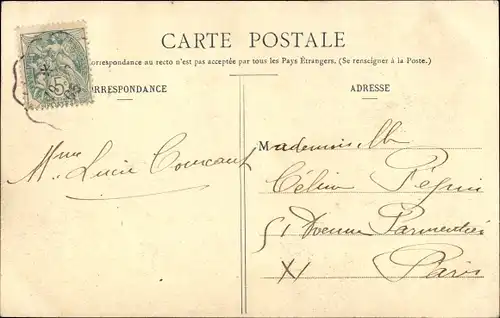 CARTE POSTALE
Correspondance au recto n'est pas acceptée par tous les Pays Étrangers. (Se renseigner à la Poste.)
RRESPONDANCE
ADRESSE
Mme Lucie Courcaut
Mademoiselle
Céline Péguin
51 Avenue Parmentier
XI Paris
5